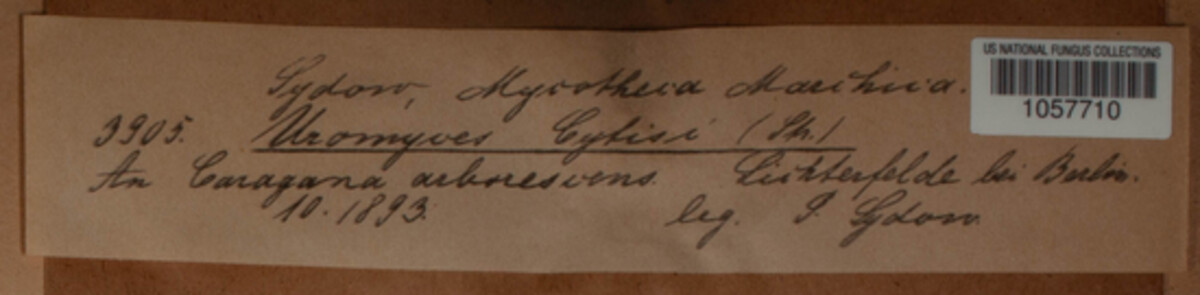 Sydow, Mycotheca Marchica.
3905. Uromyces Cytisi (Str.)
An Caragana arborescens. Lichterfelde bei Berlin.
10. 1893. leg. P. Sydow.
US NATIONAL FUNGUS COLLECTIONS
1057710